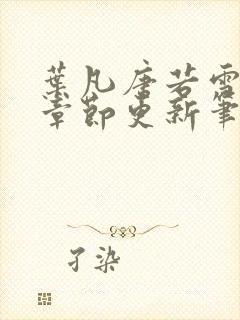 葉凡唐若雪
章節更新筆
孑染